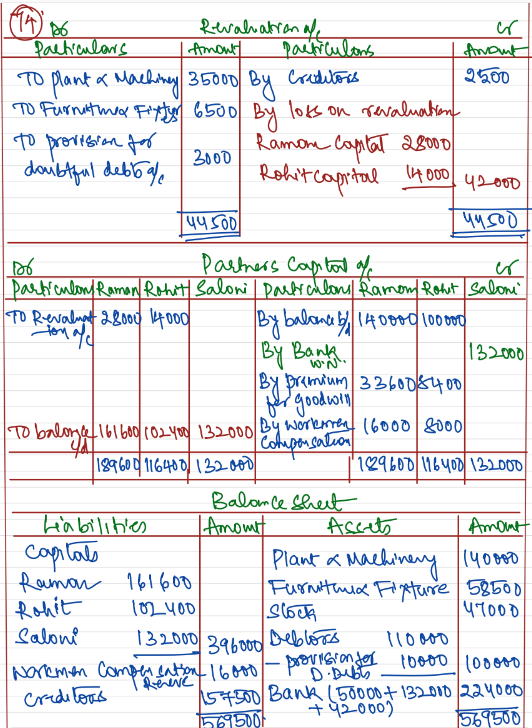 14
Dr Revaluation a/c Cr
Particulars Amount Particulars Amount
To plant & Machinery 35000 By Creditors 2500
To Furniture Fixtures 6500 By loss on revaluation
To provision for doubtful debts a/c 3000 Raman Capital 28000
Rohit Capital 14000 42000
44500 44500
Dr Partners Capital a/c Cr
Particulars Raman Rohit Saloni Particulars Raman Rohit Saloni
To Revaluation a/c 28000 14000 By balance b/d 140000 100000
By Bank W.N. 132000
By premium for goodwill 33600 8400
To balance c/d 161600 102400 132000 By workmen compensation 16000 8000
189600 116400 132000 189600 116400 132000
Balance sheet
Liabilities Amount Assets Amount
Capitals Plant & Machinery 140000
Raman 161600 Furniture Fixture 58500
Rohit 102400 Stock 47000
Saloni 132000 396000 Debtors 110000
Workmen Compensation Reserve 16000 - provision for D. Debts 10000 100000
Creditors 157500 Bank (50000+132000 + 42000) 224000
569500 569500